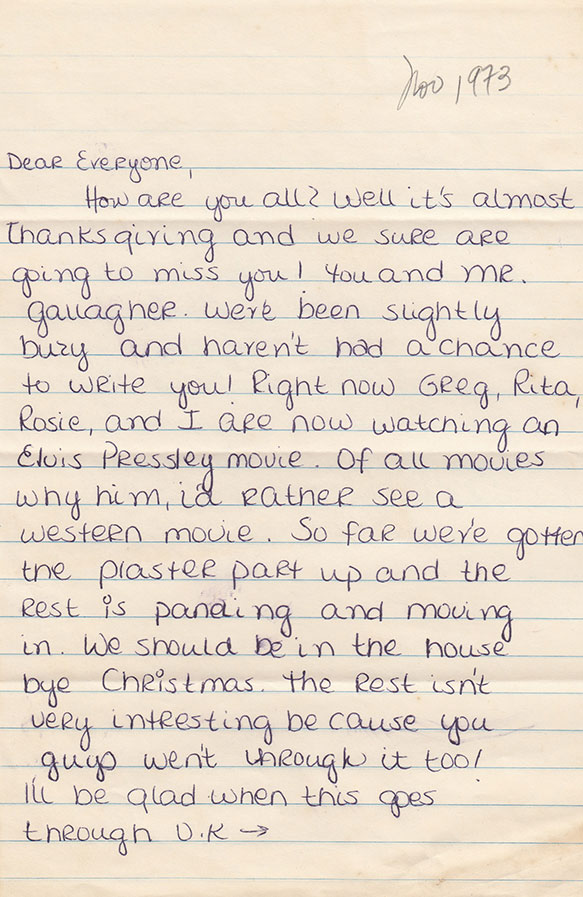 Nov 1973
Dear Everyone,
How are you all? Well it's almost
Thanksgiving and we sure are
going to miss you! You and Mr.
Gallagher. We've been slightly
buzy and haven't had a chance
to write you! Right now Greg, Rita,
Rosie, and I are now watching an
Elvis Pressley movie. Of all movies
why him, i'd rather see a
western movie. So far we've gotten
the plaster part up and the
rest is pandling and moving
in. We should be in the house
bye Christmas. The rest isn't
very intresting because you
guys went through it too!
I'll be glad when this goes
through O.K →